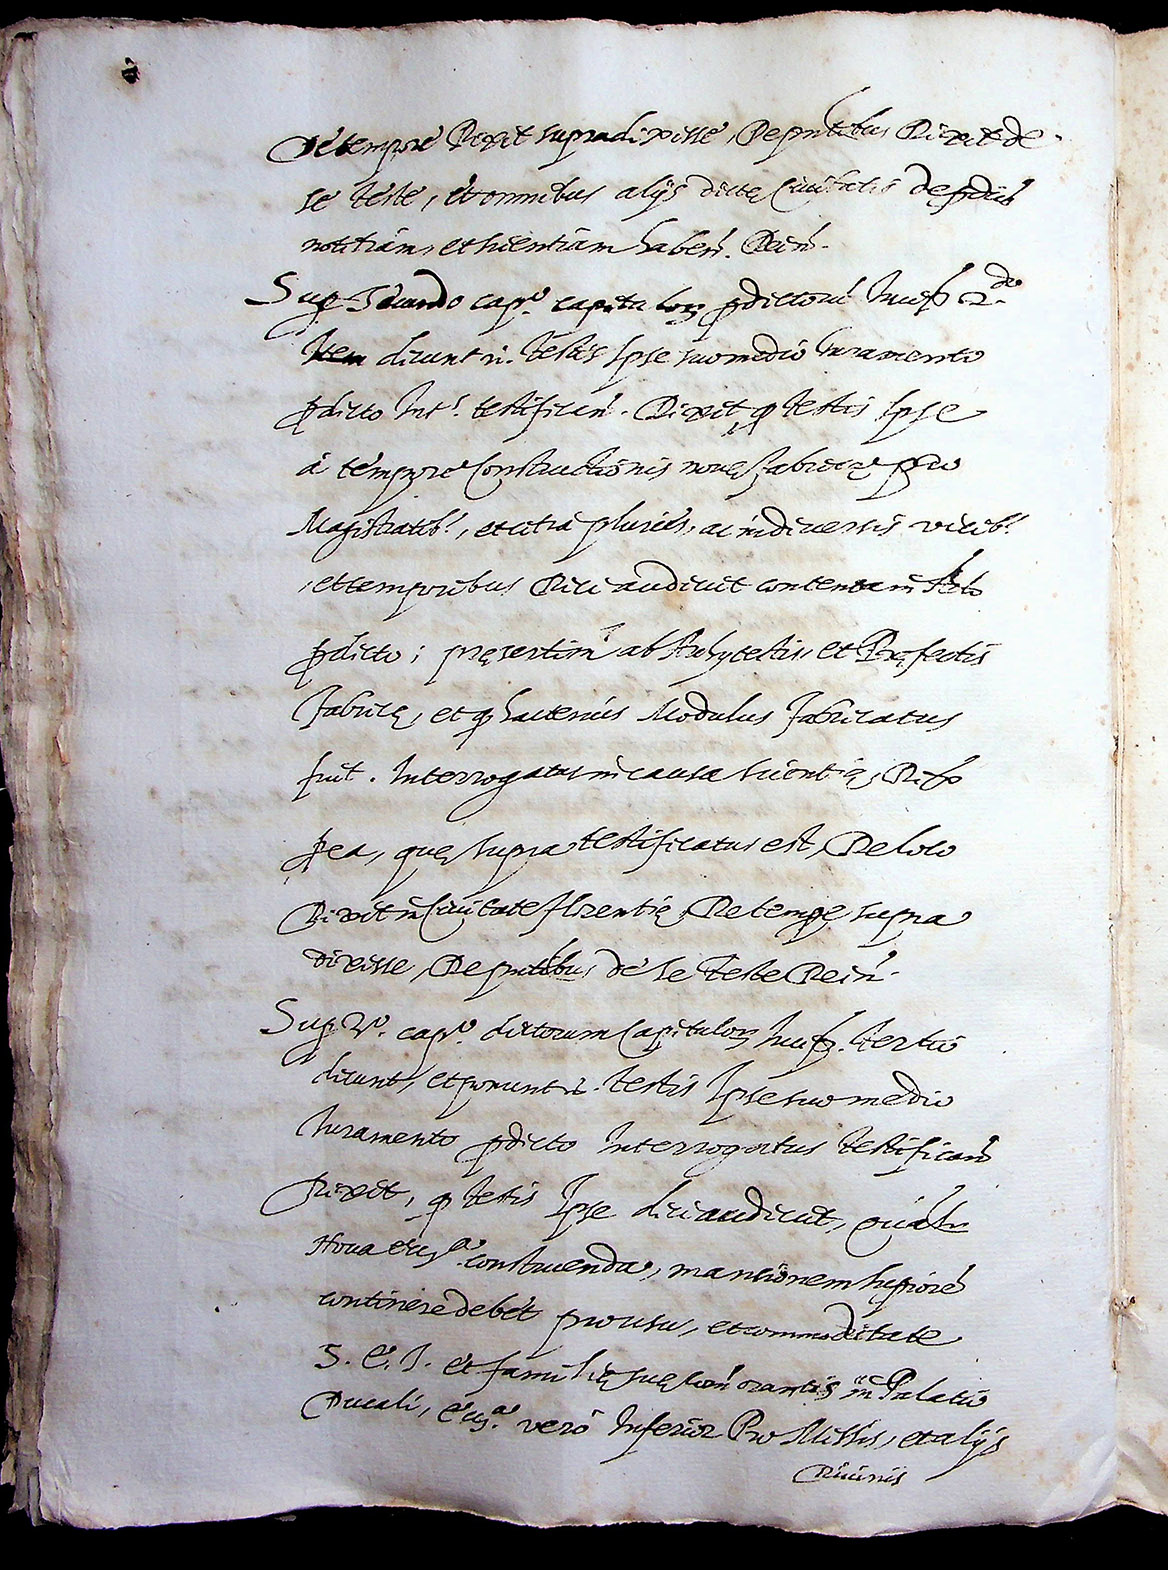 De tempore Dixit supra dixisse, De pñtibus Dixit de
se teste, et omnibus alijs dictę Ciuitatis de pdictis
notitiam, et scientiam haben̄. Dein̄.
Sup. Secundo cap.º capitulor, pdictorū incip. 2.do
Item dicunt n. testis Ipse suo medio Iuramento
pdicto Int.s testifican̄. Dixit, q testis Ipse
à tempore Constructionis nouę fabricę pro
Magistratib.s, et citra pluries, ac in diuersis vicib.s
et temporibus Dici audiuit contenta in
pdicto; pręsertim ab Archytectis, et Pręfectis
Fabricę, et q hactenus Modulus Fabricatus
fuit. Interrogatus in causa scientię, Dixit
p ea, quę supra testificatus est, De loco
Dixit in Ciuitate Florentię, De tempe supra
dixisse, De pñtibus de se teste Dein̄.
Sup. cap.º dictorum Capitulor, incip. Tertio
dicunt, et ponunt n. testis Ipse suo medio
Iuramento pdicto Interrogatus testifican̄
Dixit, q testis Ipse dici audiuit,
Noua construenda, mansionem supiorē
continere debet pro usu, et commoditate
S. C. S. et familię suę com̄orantis in Palatio
Ducali, verò Inferior Pro Missis, et alijs
Diuinis